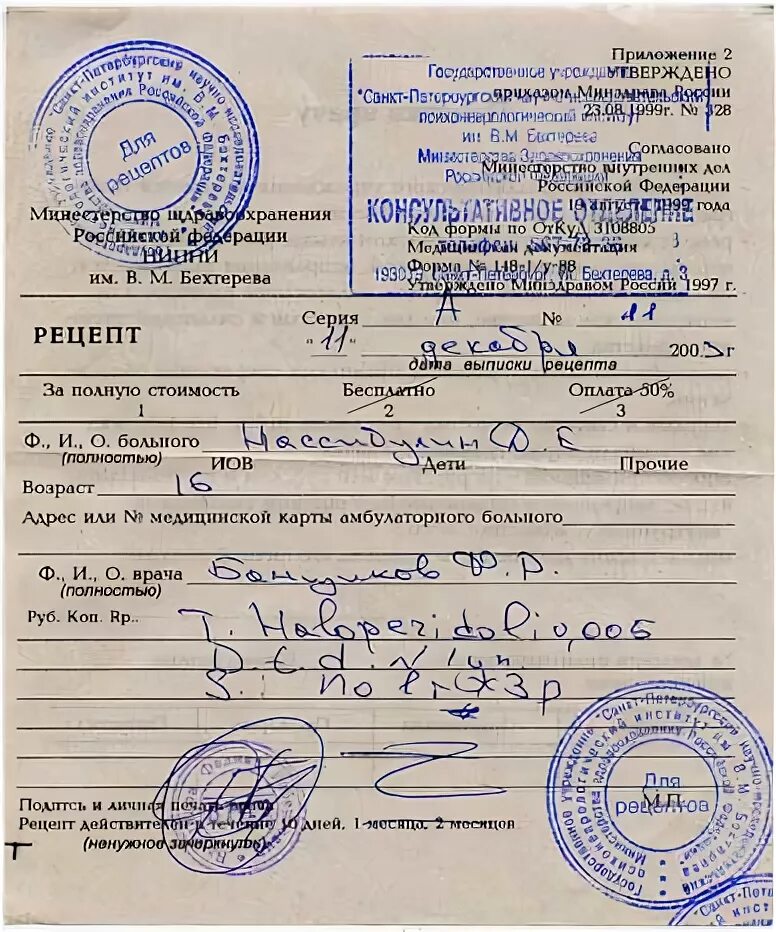 Приложение 2
УТВЕРЖДЕНО
приказом Минздрава России
23.08.1999г. № 328
Согласовано
Министерство внутренних дел
Российской Федерации
19 августа 1999 года
Код формы по ОтКуД 3108805
Медицинская документация
Форма № 148-1/у-88
Утверждено Минздравом России 1997 г.
Государственное учреждение
"Санкт-Петербургский научно-исследовательский
психоневрологический институт
им. В.М Бехтерева
Министерства Здравоохранения
Российской Федерации
КОНСУЛЬТАТИВНОЕ ОТДЕЛЕНИЕ
Санкт-Петербург, ул. Бехтерева, д. 3
Для
рецептов
Министерство здравоохранения
Российской федерации
НИПНИ
им. В. М. Бехтерева
РЕЦЕПТ
Серия А № 11
"11" декабря 2003 г
дата выписки рецепта
За полную стоимость Бесплатно Оплата 50%
1 2 3
Ф., И., О. больного Нассибулин Д Е
(полностью) ИОВ Дети Прочие
Возраст 16
Адрес или № медицинской карты амбулаторного больного
Ф., И., О. врача Ф.Р.
(полностью)
Руб. Коп. Rp.. T. Haloperidoli 0,005
D.t.d. N
S.: По 1т Х 3р
Подпись и личная печать врача
Рецепт действителен в течение 10 дней, 1 месяца, 2 месяцов
(ненужное зачеркнуть)
Для
рецептов
М.П.